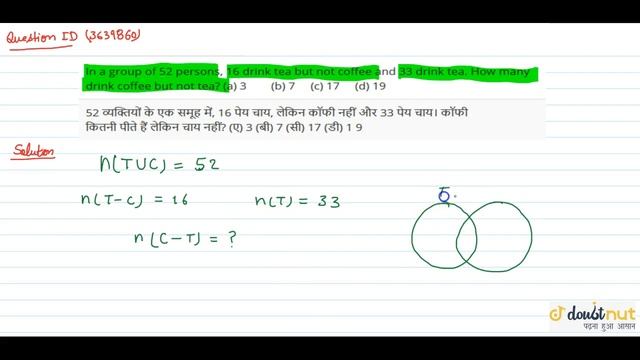 Question ID (3639860)
In a group of 52 persons, 16 drink tea but not coffee and 33 drink tea. How many
drink coffee but not tea? (a) 3 (b) 7 (c) 17 (d) 19
52 व्यक्तियों के एक समूह में, 16 पेय चाय, लेकिन कॉफी नहीं और 33 पेय चाय। कॉफी
कितनी पीते हैं लेकिन चाय नहीं? (ए) 3 (बी) 7 (सी) 17 (डी) 1 9
Solution
n(TUC) = 52
n(T-C) = 16 n(T) = 33
n(C-T) = ?
doubtnut
पढ़ना हुआ आसान